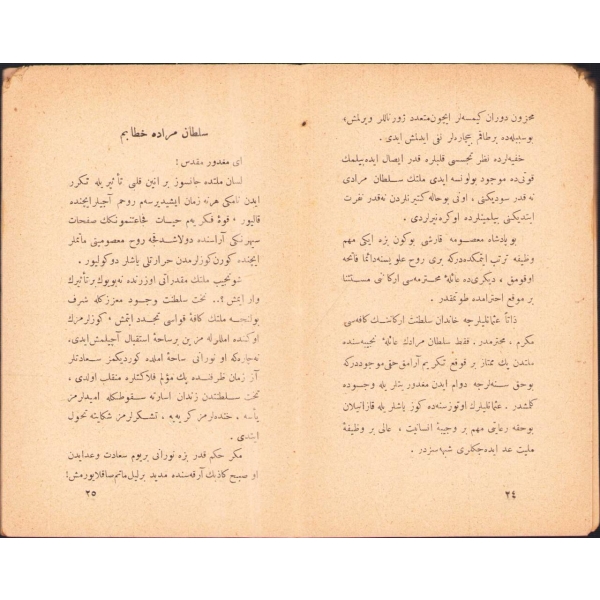 محزون دوران كیمسه‌لر ایچون متعدد ژورناللر ویرلمش،
بوسببله‌ده برطاقم بیچاره‌لر نفی ایدلمش ایدی.
خفیه‌لرده نظر تجسسی قلبلره قدر ایصال ایده‌بیلمك
قوتی‌ده موجود بولونسه ایدی ملتك سلطان مرادی
نه قدر سودیكنی، اونی بوحاله كتیرنلردن نه‌قدر نفرت
ایتدیكنی بیلمینلرده اوكره‌نیرلردی.
بو پادشاه معصومه قارشی بوكون بزه ایكی مهم
وظیفه ترتب ایتمكده‌دركه بری روح علویسنه دائما فاتحه
اوقومق، دیكری‌ده عائلهٔ محترمه‌سی اركاننی مستثنا
بر موقع احترامده طوتمقدر.
ذاتاً عثمانلیلرجه خاندان سلطنت اركاننك كافه‌سی
مكرم، محترمدر، فقط سلطان مرادك عائلهٔ نجیبه‌سنده
ملتدن پك ممتاز بر موقع تكریم آرامق حقی موجوددركه
بوحق سنه‌لرجه دوام ایدن مغدوریتلر یله وجوده
كلمشدر. عثمانلیلرك اوتوز سنه‌ده كوز یاشلر یله قازانیلان
بوحقه رعایتی مهم بر وجیبهٔ انسانیت، عالی بر وظیفهٔ
ملیت عد ایده‌جكلری شبهه‌سزدر.
٢٤
سلطان مراده خطابم
ای مغدور مقدس!
لسان ملتده جانسوز بر انین قلبی تأثیریله تكرر
ایدن نامكی هرنه زمان ایشیدیرسه‌م روحم آجیلر ایچنده
قالیور. قوهٔ فكریه‌م حیات فجاعتنمونكك صفحات
سپهرنكی آراسنده دولاشدقجه روح معصومیتی ماتملر
ایچنده كورن كوزلرمدن حرارتلی یاشلر دوكولیور.
شو نجیب ملتك مقدراتی اوزرنده نه‌بویوك بر تأثیرك
وار ایمش؟.. تخت سلطنت وجود معززكله شرف
بولنجه ملتك كافهٔ قواسی تجدد ایتمش. كوزلرمزك
اوكنده امللرله مزین بر ساحهٔ استقبال آچیلمش ایدی.
نه‌چاره‌كه او نورانی ساحهٔ املده كوردیكمز سعادتلر
آز زمان ظرفنده پك مؤلم فلاكتلره منقلب اولدی.
تخت سلطنتدن زندان اسارته سقوطكله امیدلرمز
یأسه، خنده‌لرمز كریه‌یه، تشكرلرمز شكایته تحول
ایتدی.
مكر حكم قدر بزه نورانی بریوم سعادت وعدایدن
او صبح كاذبك آرقه‌سنده مدید برلیل ماتم صاقلایورمش!
٢٥